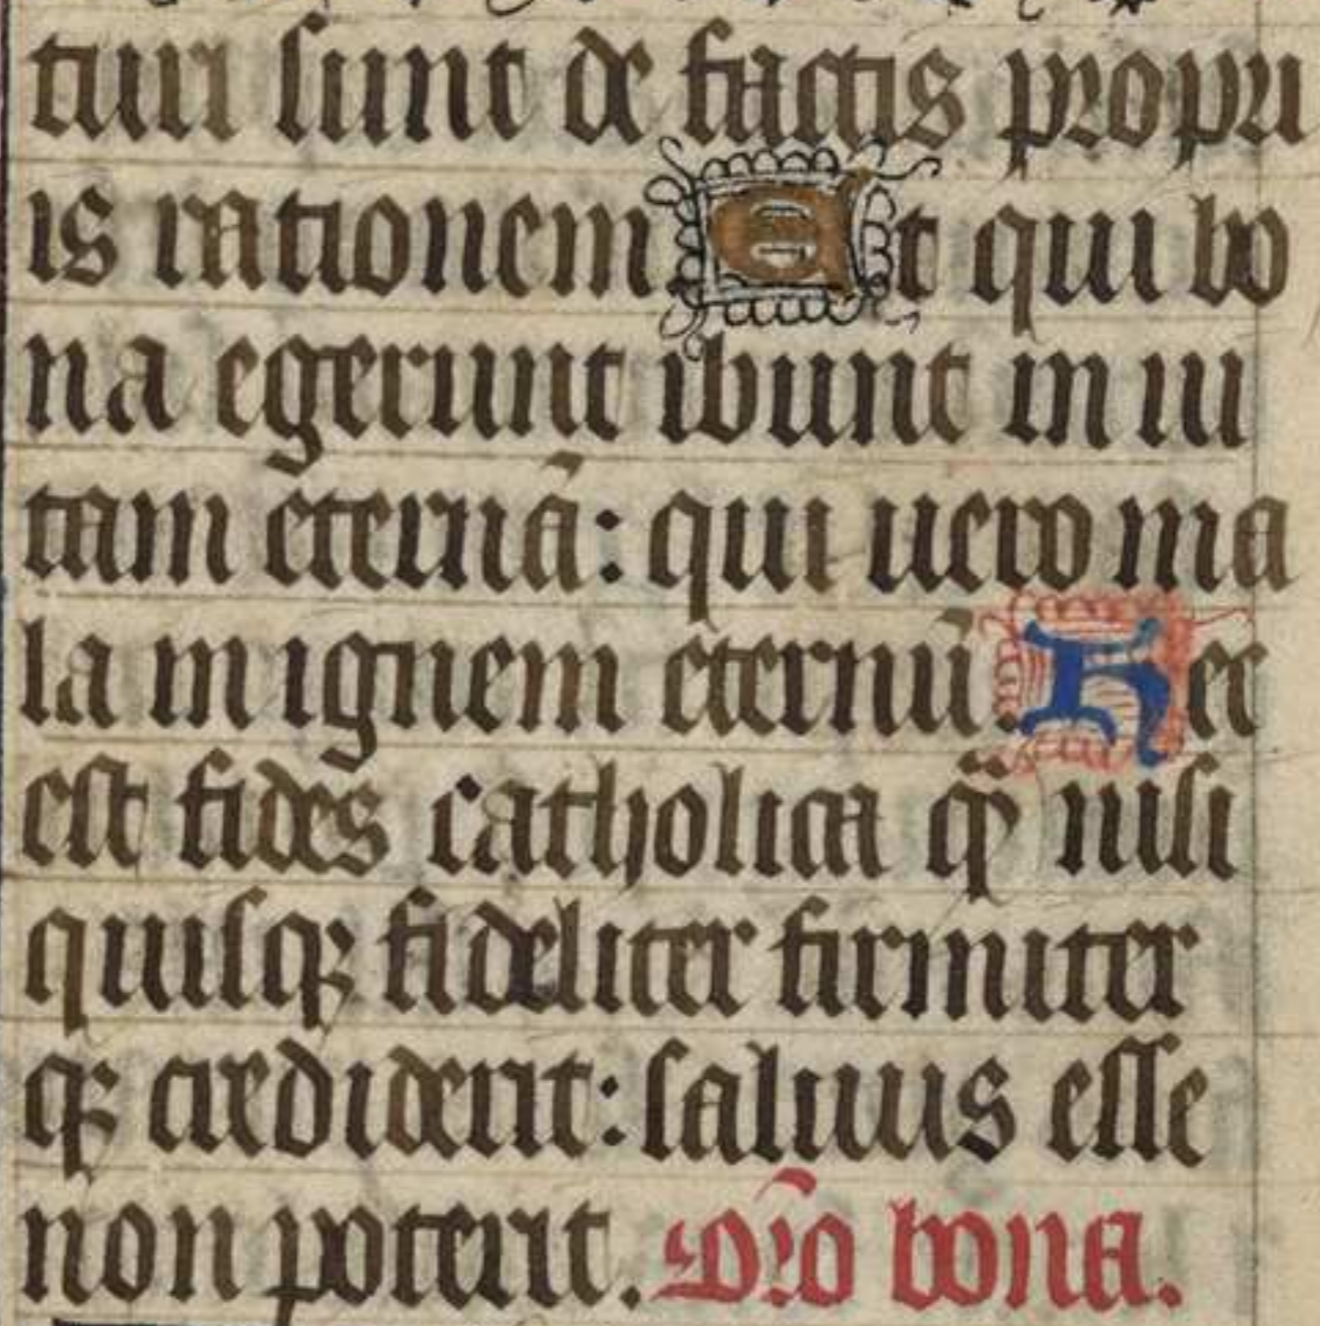 turi sunt de factis propri
is rationem. Et qui bo
na egerunt ibunt in ui
tam eternā: qui uero ma
la in ignem eternū. Hec
est fides catholica q̄ nisi
quisqꝫ fideliter firmiter
qꝫ crediderit: saluus esse
non poterit. Or̄o bona.